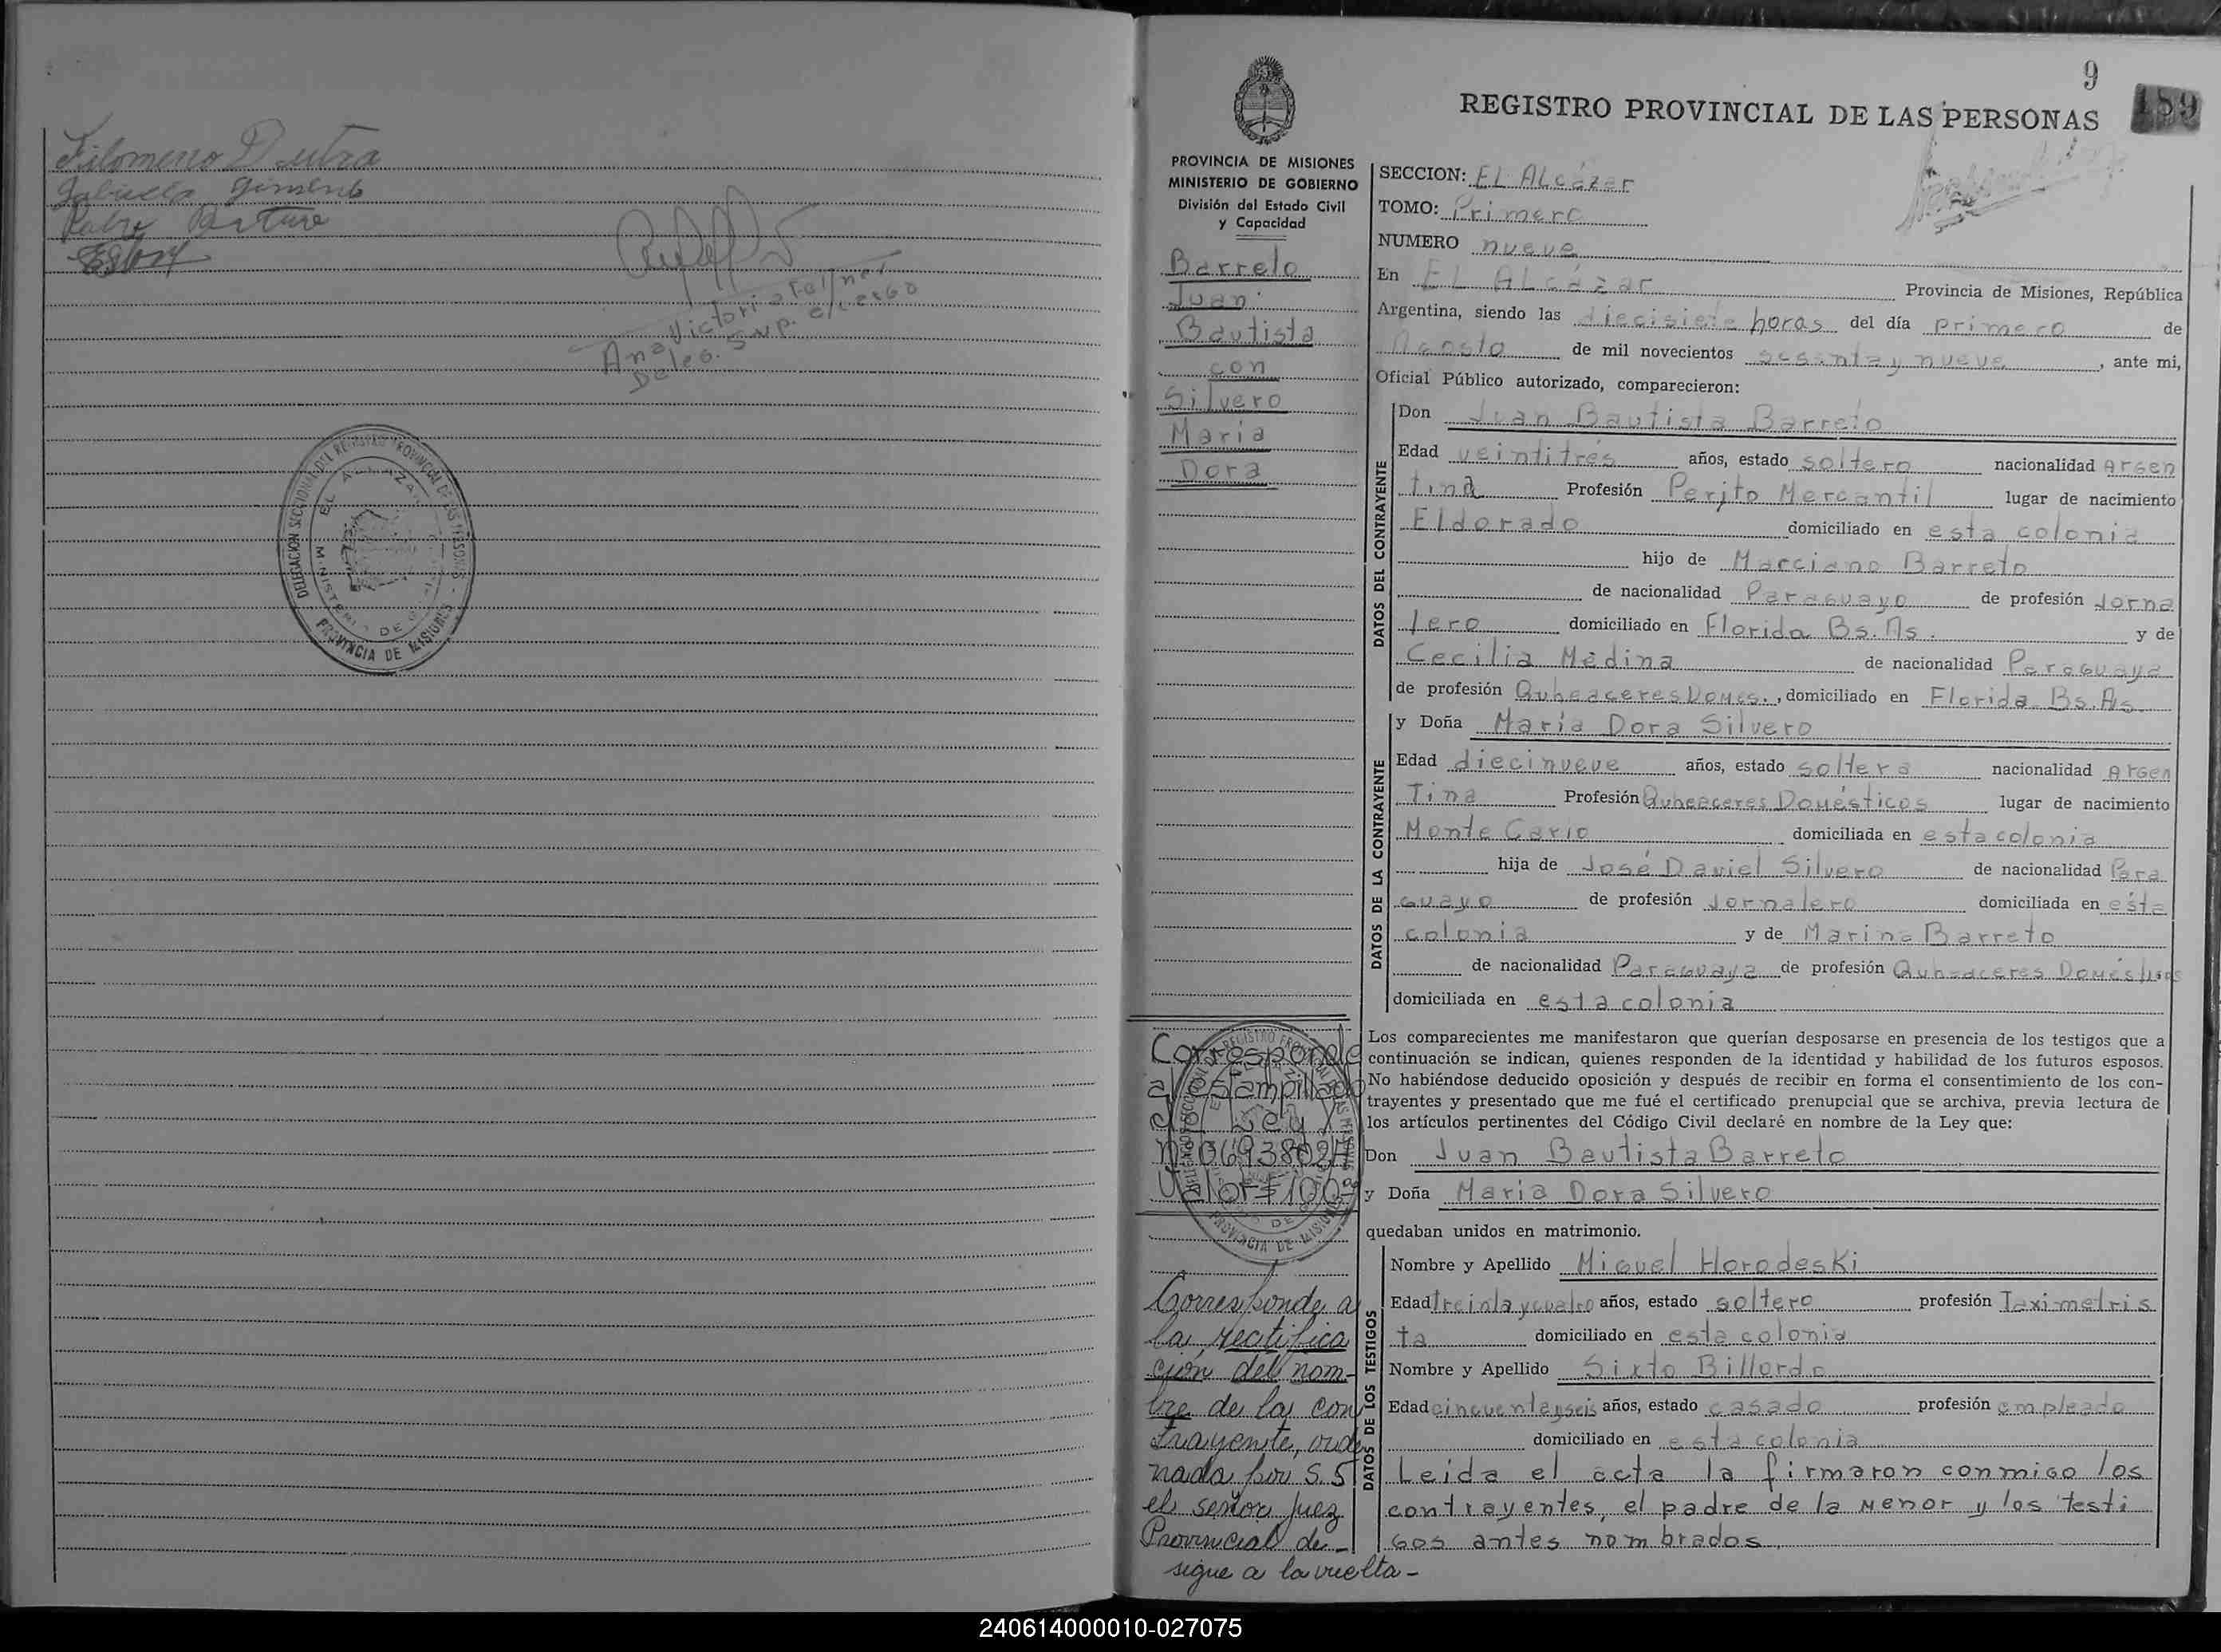 Filomeno Dutra
Gabriela Gimenez
Ana Victoria
Deleg. Sup.
DELEGACION SECCIONAL DEL REGISTRO PROVINCIAL DE LAS PERSONAS
EL ALCAZAR
MINISTERIO DE
PROVINCIA DE MISIONES
9
REGISTRO PROVINCIAL DE LAS PERSONAS
159
PROVINCIA DE MISIONES
MINISTERIO DE GOBIERNO
División del Estado Civil
y Capacidad
Barreto
Juan
Bautista
con
Silvero
María
Dora
SECCION: El Alcázar
TOMO: Primero
NUMERO nueve
En El Alcázar Provincia de Misiones, República
Argentina, siendo las diecisiete horas del día primero de
Agosto de mil novecientos sesenta y nueve, ante mi,
Oficial Público autorizado, comparecieron:
DATOS DEL CONTRAYENTE
Don Juan Bautista Barreto
Edad veintitrés años, estado soltero nacionalidad Argen
tina Profesión Perito Mercantil lugar de nacimiento
Eldorado domiciliado en esta colonia
hijo de Marciano Barreto
de nacionalidad Paraguayo de profesión Jorna
lero domiciliado en Florida Bs. As. y de
Cecilia Medina de nacionalidad Paraguaya
de profesión Quheaceres Domés., domiciliado en Florida Bs. As.
DATOS DE LA CONTRAYENTE
y Doña María Dora Silvero
Edad diecinueve años, estado soltera nacionalidad Argen
Tina Profesión Quheaceres Domésticos lugar de nacimiento
Monte Carlo domiciliada en esta colonia
hija de José Daniel Silvero de nacionalidad Para
guayo de profesión Jornalero domiciliada en esta
colonia y de Marina Barreto
de nacionalidad Paraguaya de profesión Quheaceres Domésticos
domiciliada en esta colonia
Los comparecientes me manifestaron que querían desposarse en presencia de los testigos que a
continuación se indican, quienes responden de la identidad y habilidad de los futuros esposos.
No habiéndose deducido oposición y después de recibir en forma el consentimiento de los con-
trayentes y presentado que me fué el certificado prenupcial que se archiva, previa lectura de
los artículos pertinentes del Código Civil declaré en nombre de la Ley que:
Don Juan Bautista Barreto
y Doña María Dora Silvero
quedaban unidos en matrimonio.
DATOS DE LOS TESTIGOS
Nombre y Apellido Miguel Horodeski
Edad treinta y cuatro años, estado soltero profesión Taximetris
ta domiciliado en esta colonia
Nombre y Apellido Sixto Billordo
Edad cincuenta y seis años, estado casado profesión empleado
domiciliado en esta colonia
Leida el acta la firmaron conmigo los
contrayentes, el padre de la menor y los testi
gos antes nombrados.
Corresponde
al estampillado
de Ley
nº 0693802A
Valor $100
Corresponde a
la rectifica
ción del nom-
bre de la con
trayente, orde
nada por S.S
el señor Juez
Provincial de-
sigue a la vuelta-
240614000010-027075